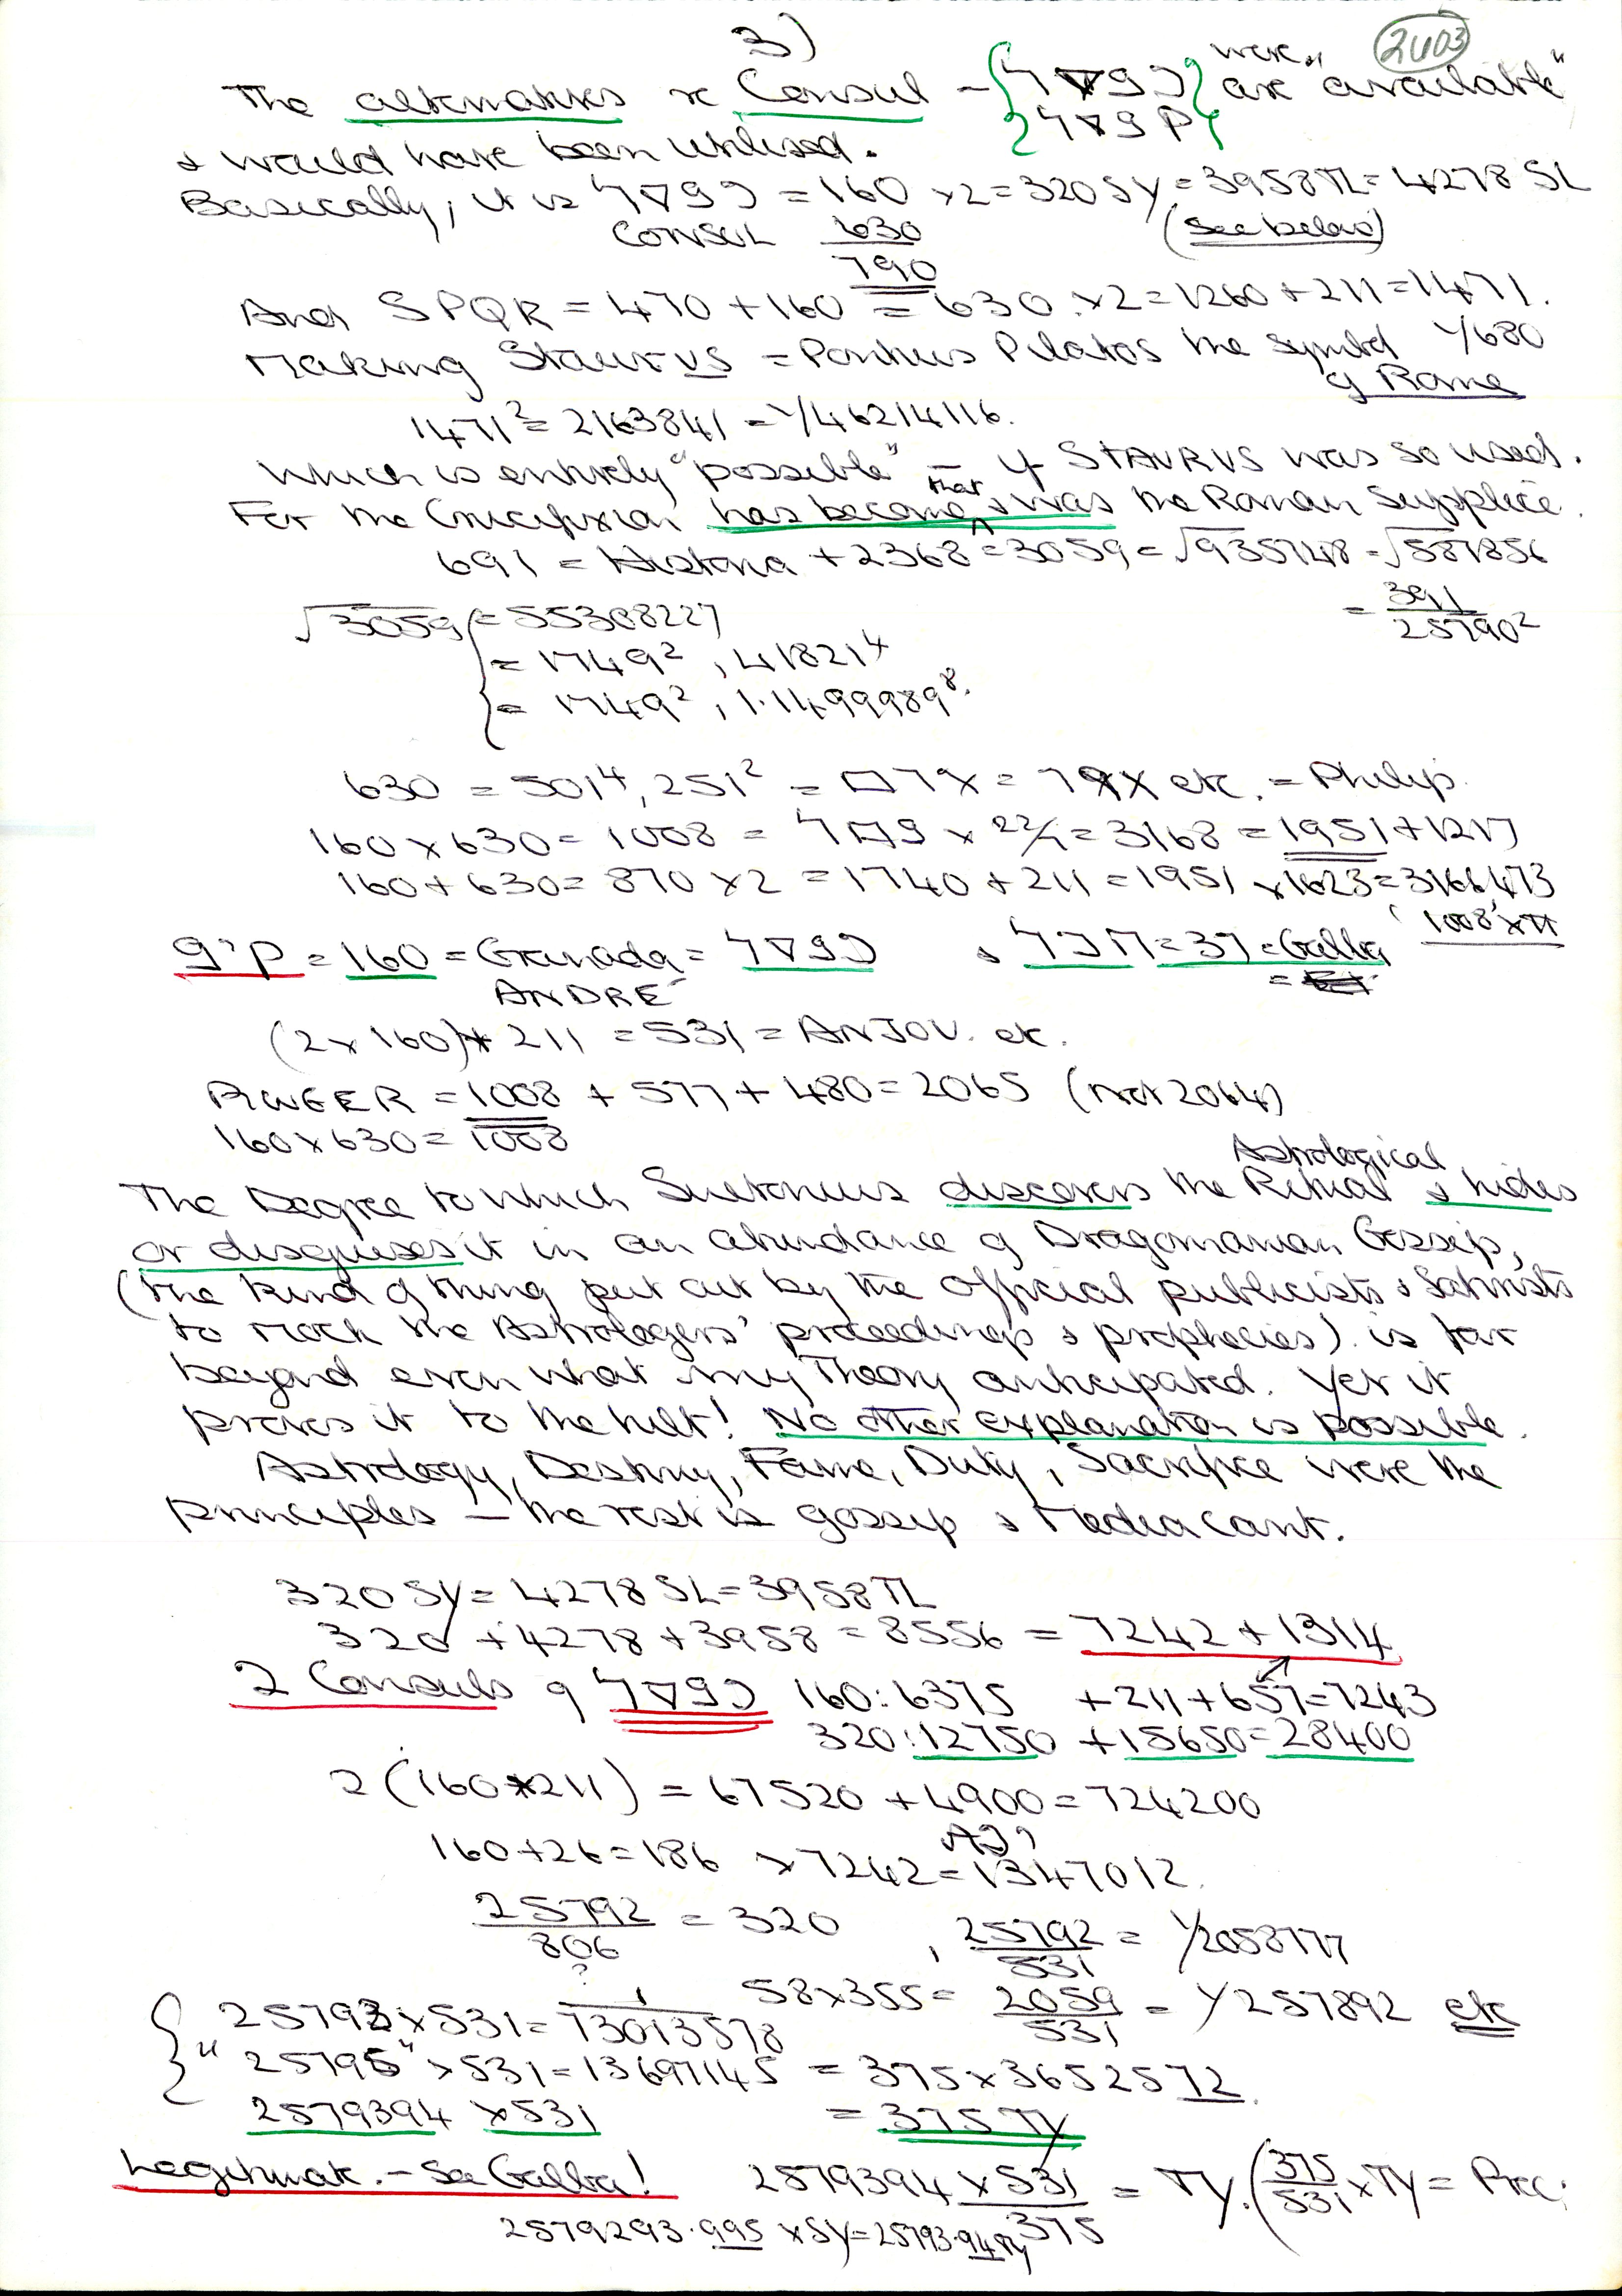 3)
2403
were
The alternatives re Consul - { 47 } are "available"
& would have been utilised.
Basically, it is = 160 x2 = 320 SY = 3958 TL = 4278 SL
CONSUL 630 (see below)
790
And SPQR = 470 + 160 = 630 . x2 = 1260 + 211 = 1471.
Making Staurus = Pontius Pilatos the symbol 1/680
of Rome
1471² = 2163841 = 1/46214116.
Which is entirely "possible" - if STAVRVS was so used.
that
For the Crucifixion has become & was the Roman Supplice.
691 = Historia + 2368 = 3059 = √935748 = √587856
√3059 { = 55308227 = 3911/25790²
= 1749², 41821⁴
= 1749², 1.1499989⁸.
630 = 501⁴, 251² = etc. = Philip.
160 x 630 = 1008 = x 22/7 = 3168 = 1951 + 1217
160 + 630 = 870 x 2 = 1740 + 211 = 1951 x 1623 = 3166473
1008 x π
= 160 = Granada = & = 37 = Galba
ANDRE
(2 x 160) + 211 = 531 = ANJOU. etc.
= 1008 + 577 + 480 = 2065 (not 2064)
160 x 630 = 1008
Astrological
The Degree to which Suetonius discovers the Ritual & hides
or disguises it in an abundance of Dragomanian Gossip,
(the kind of thing put out by the official publicists & Satirists
to mock the Astrologers' proceedings & prophecies) is far
beyond even what my Theory anticipated. Yet it
proves it to the hilt! No other explanation is possible.
Astrology, Destiny, Fame, Duty, Sacrifice were the
principles - the rest is gossip & Media cant.
320 SY = 4278 SL = 3958 TL
320 + 4278 + 3958 = 8556 = 7242 + 1314
2 Consuls of 160:6375 + 211 + 657 = 7243
320:12750 + 15650 = 28400
2 (160 x 211) = 67520 + 4900 = 724200
160 + 26 = 186 x 7242 = 1347012.
25792/806 = 320 , 25792/531 = 1/2058777
?
25793 x 531 = 1/73013578 58 x 355 = 2059/531 = 1/257892 etc
" 25795 " x 531 = 13697145 = 375 x 3652572
2579394 x 531 = 375 TY
Legitimate. - See Galba! 2579394 x 531/375 = TY. (375/531 x TY = Prec.
2579293.995 x SY = 25793.94